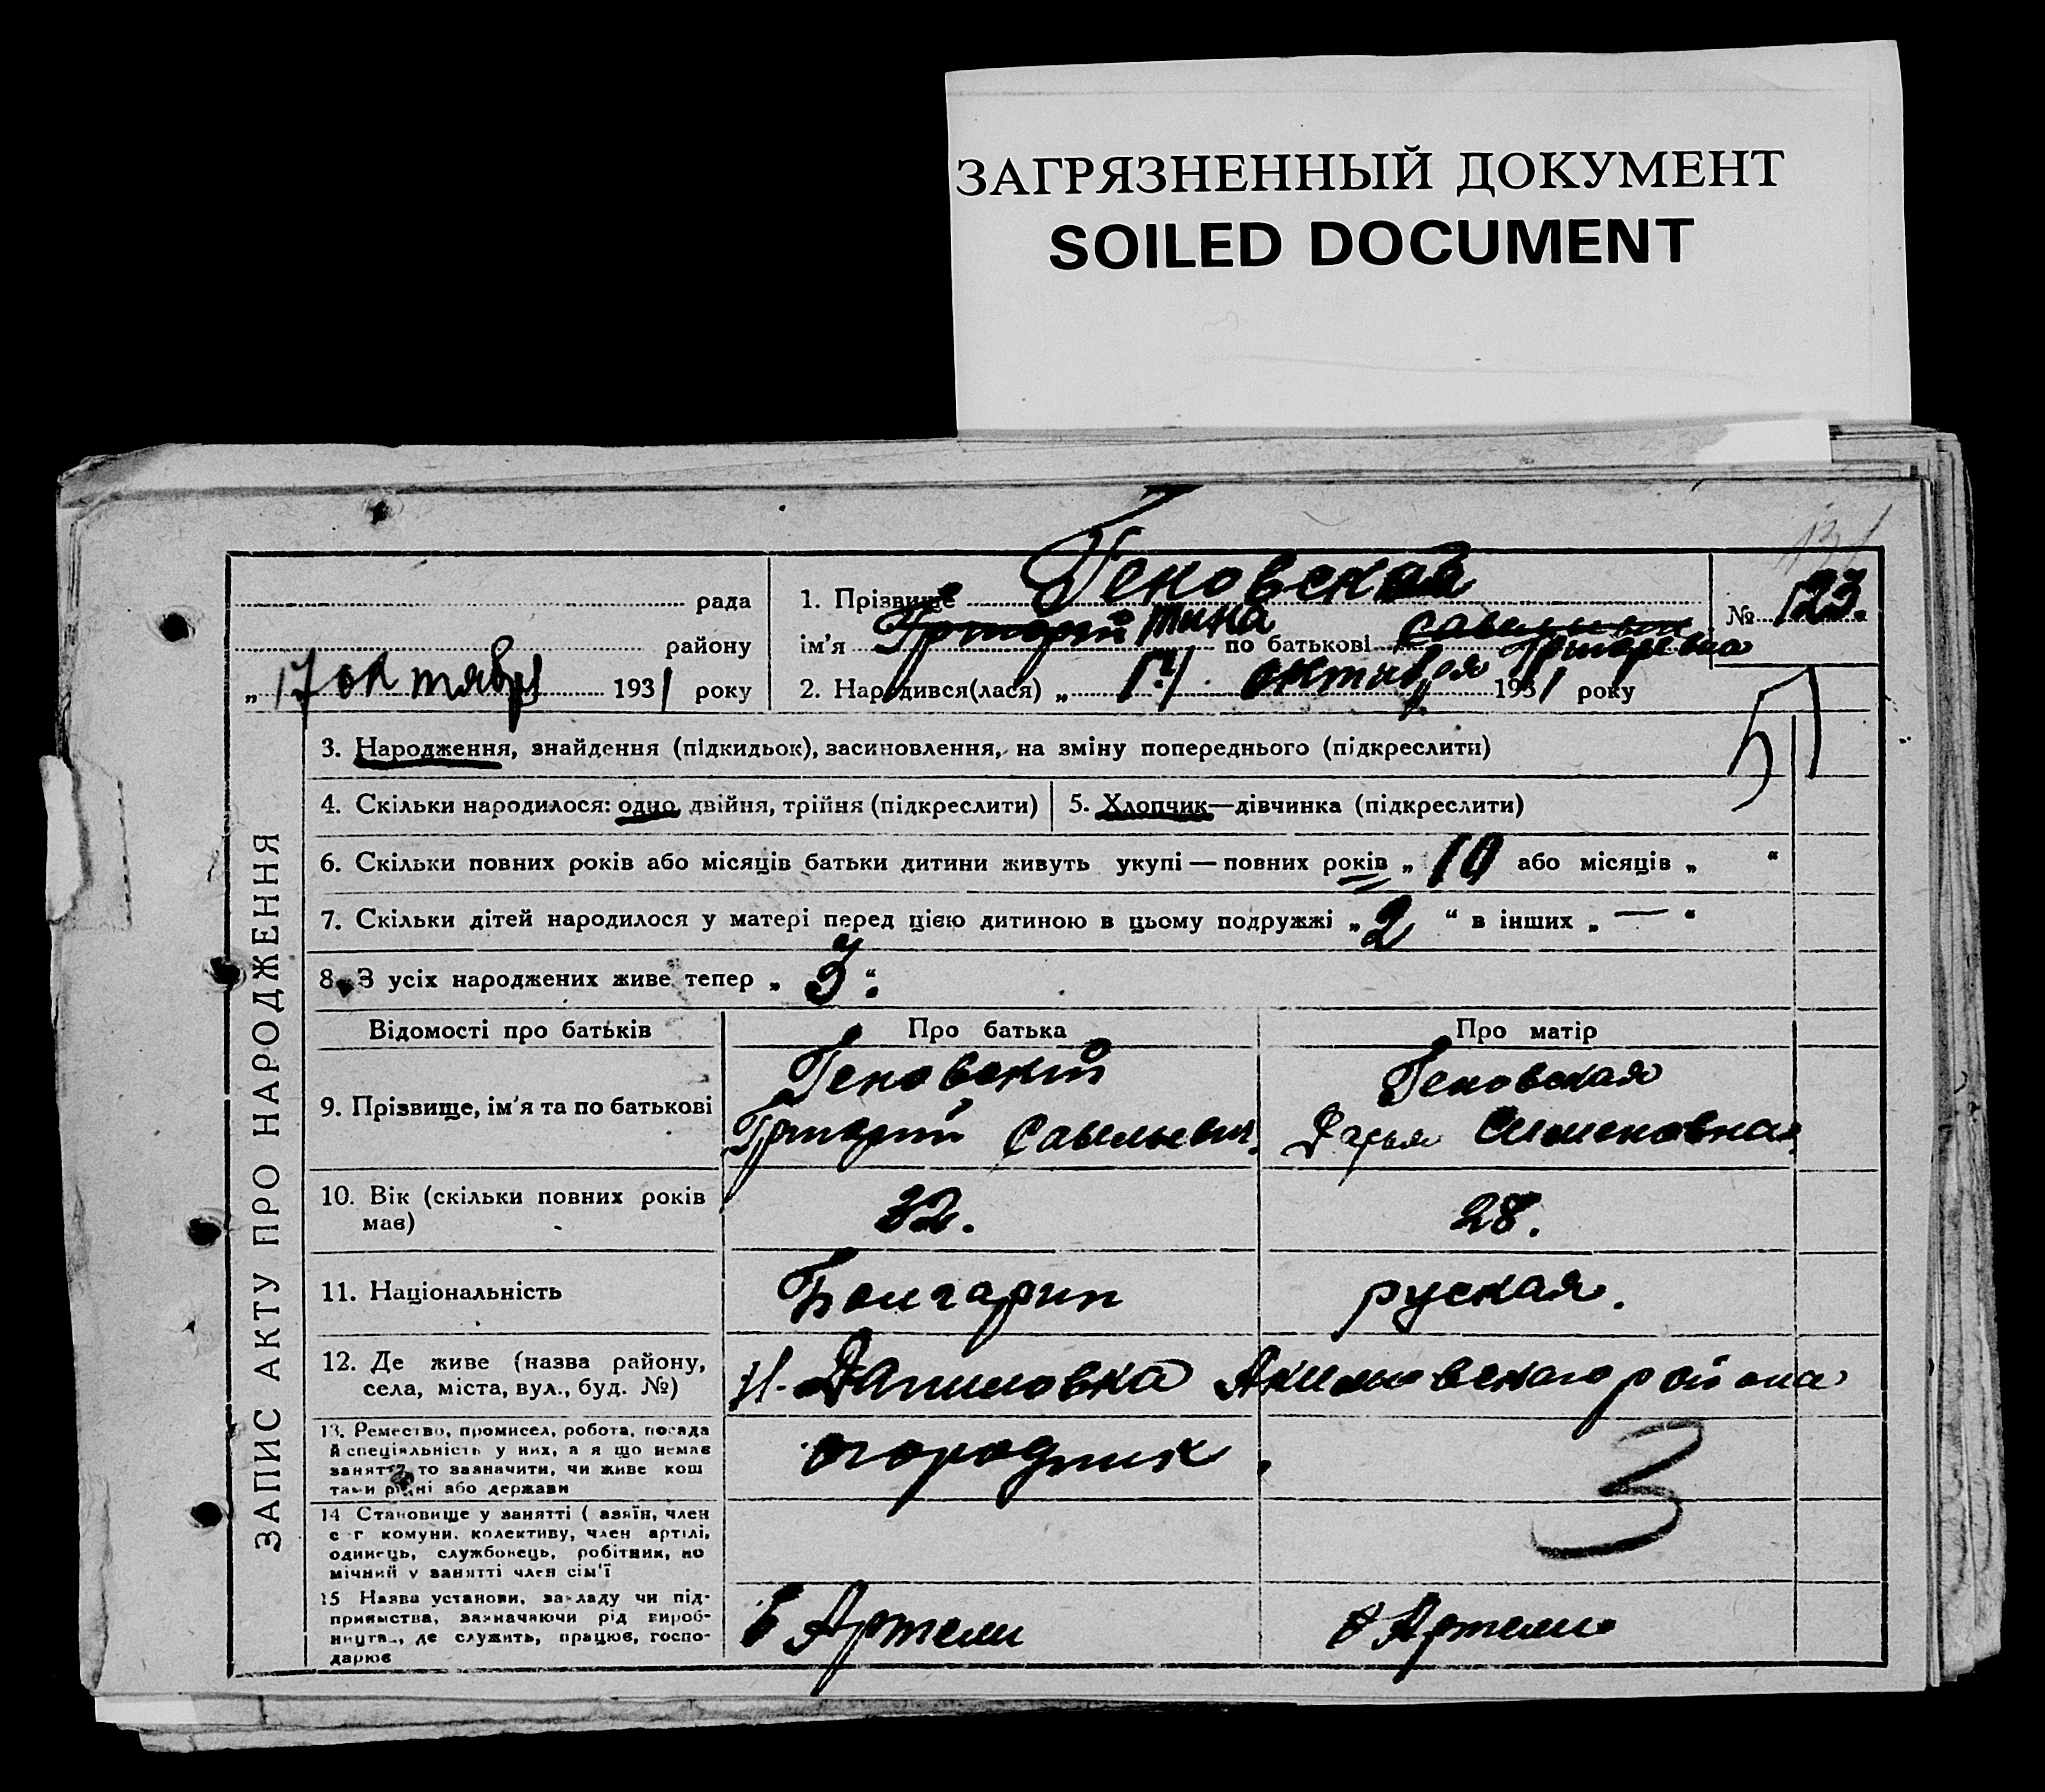 ЗАГРЯЗНЕННЫЙ ДОКУМЕНТ
SOILED DOCUMENT
131
рада
району
„ 17 октября 1931 року
1. Прізвище Геновская
ім'я Григорій Тина по батькові Савельевич Григоревна
2. Народився(лася) „ 17. октября 1931 року
№ 123.
ЗАПИС АКТУ ПРО НАРОДЖЕННЯ
3. Народження, знайдення (підкидьок), засиновлення, на зміну попереднього (підкреслити)
4. Скільки народилося: одно, двійня, трійня (підкреслити)
5. Хлопчик—дівчинка (підкреслити)
6. Скільки повних років або місяців батьки дитини живуть укупі — повних років „ 10 або місяців „ “
7. Скільки дітей народилося у матері перед цією дитиною в цьому подружжі „ 2 “ в інших „ — “
8. З усіх народжених живе тепер „ 3 “.
Відомості про батьків Про батька Про матір
9. Прізвище, ім'я та по батькові
Геновскій
Григорій Савельевич.
Геновская
Дарья Семеновна.
10. Вік (скільки повних років має)
32. 28.
11. Національність Болгарин руская.
12. Де живе (назва району,
села, міста, вул., буд. №)
Н. Даниловка Акимовскаго района
13. Ремество, промисел, робота, посада
й спеціяльність у них, а я що немає
заняття то зазначити, чи живе кош
тами рідні або держави
огородник.
3
14 Становище у занятті ( азяїн, член
с-г комуни. колективу, член артілі,
одинець, службовець, робітник, по
мічний у занятті член сім'ї
15 Назва установи, закладу чи під-
приємства, зазначаючи рід вироб-
ництва, де служить, працює, госпо-
дарює
В Артели в Артели